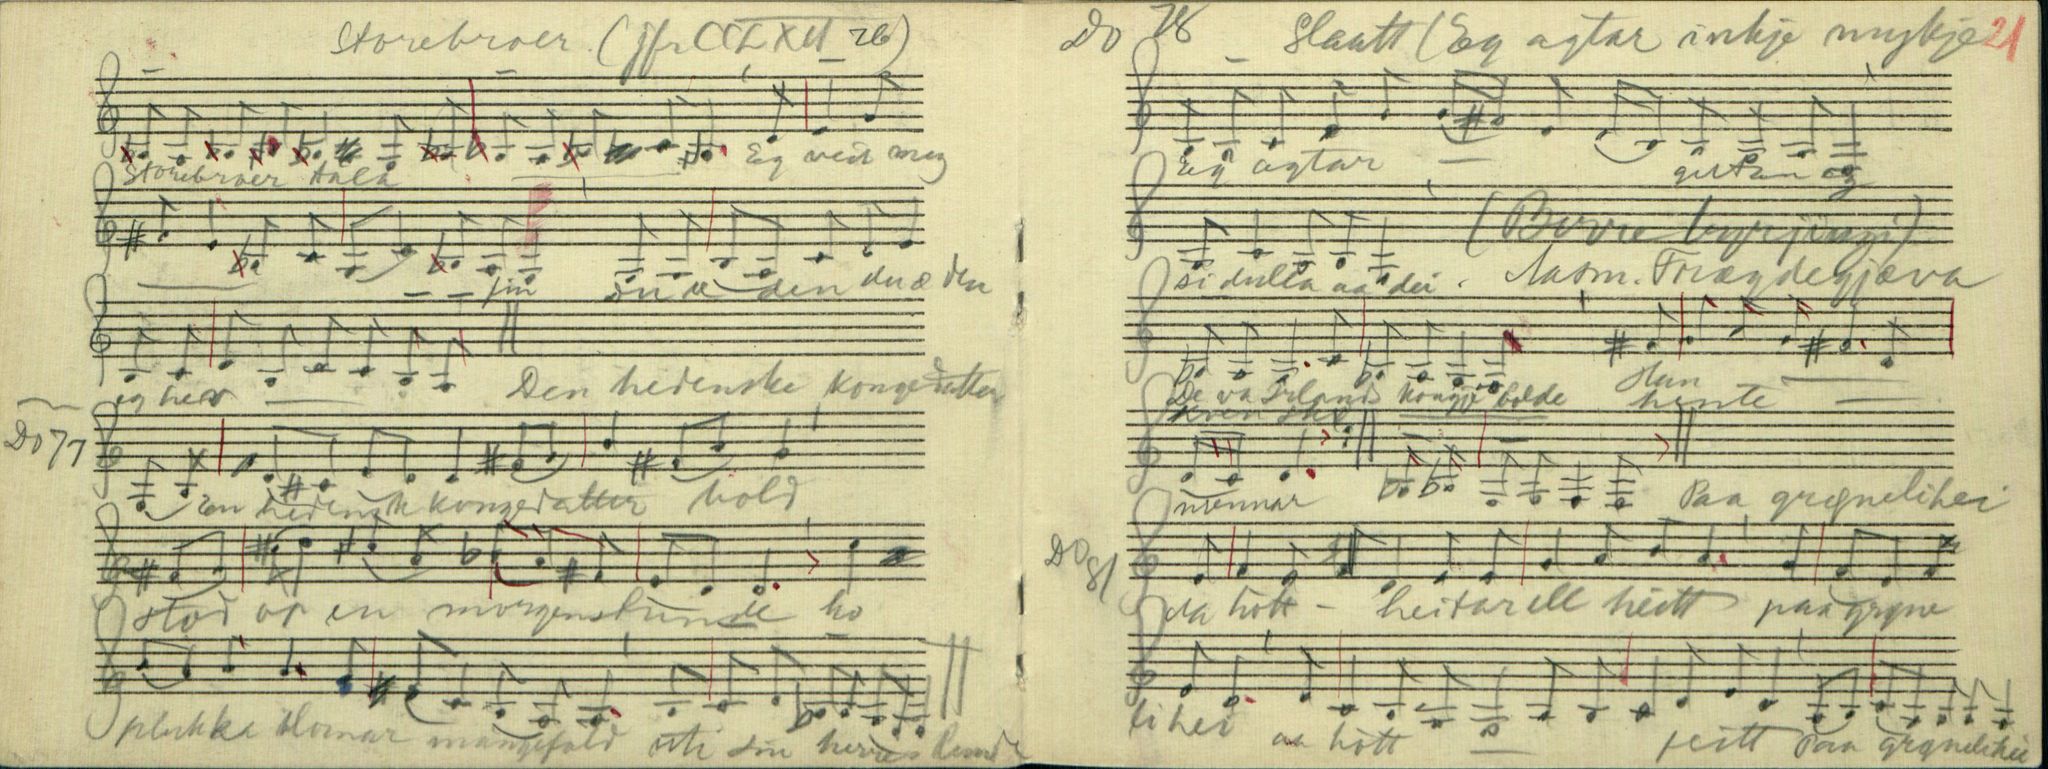 Storebroer (jfr CCLXII 26)
Eg veit meg
Storebroer Aala
fin du æ den du æ den
eg hev
Den hedenske kongedatter
Do 77
en hedensk kongedatter bold
stod op en morgenstunde ho
plukka blomar mangefald uti sin herres lund
Do 78 Slaatt (Eg agtar inkje mykje 21
Eg agtar gutan og
(Borre byrjingi)
si dulla aa dei. Aasm. Frægdegjæva
De va Irlands kongje bolde Han
hente
mennar Paa grønelihei
Do 81
da hott - heitarell heitt paa grøne
lihei aa hott feitt Paa grønelihei